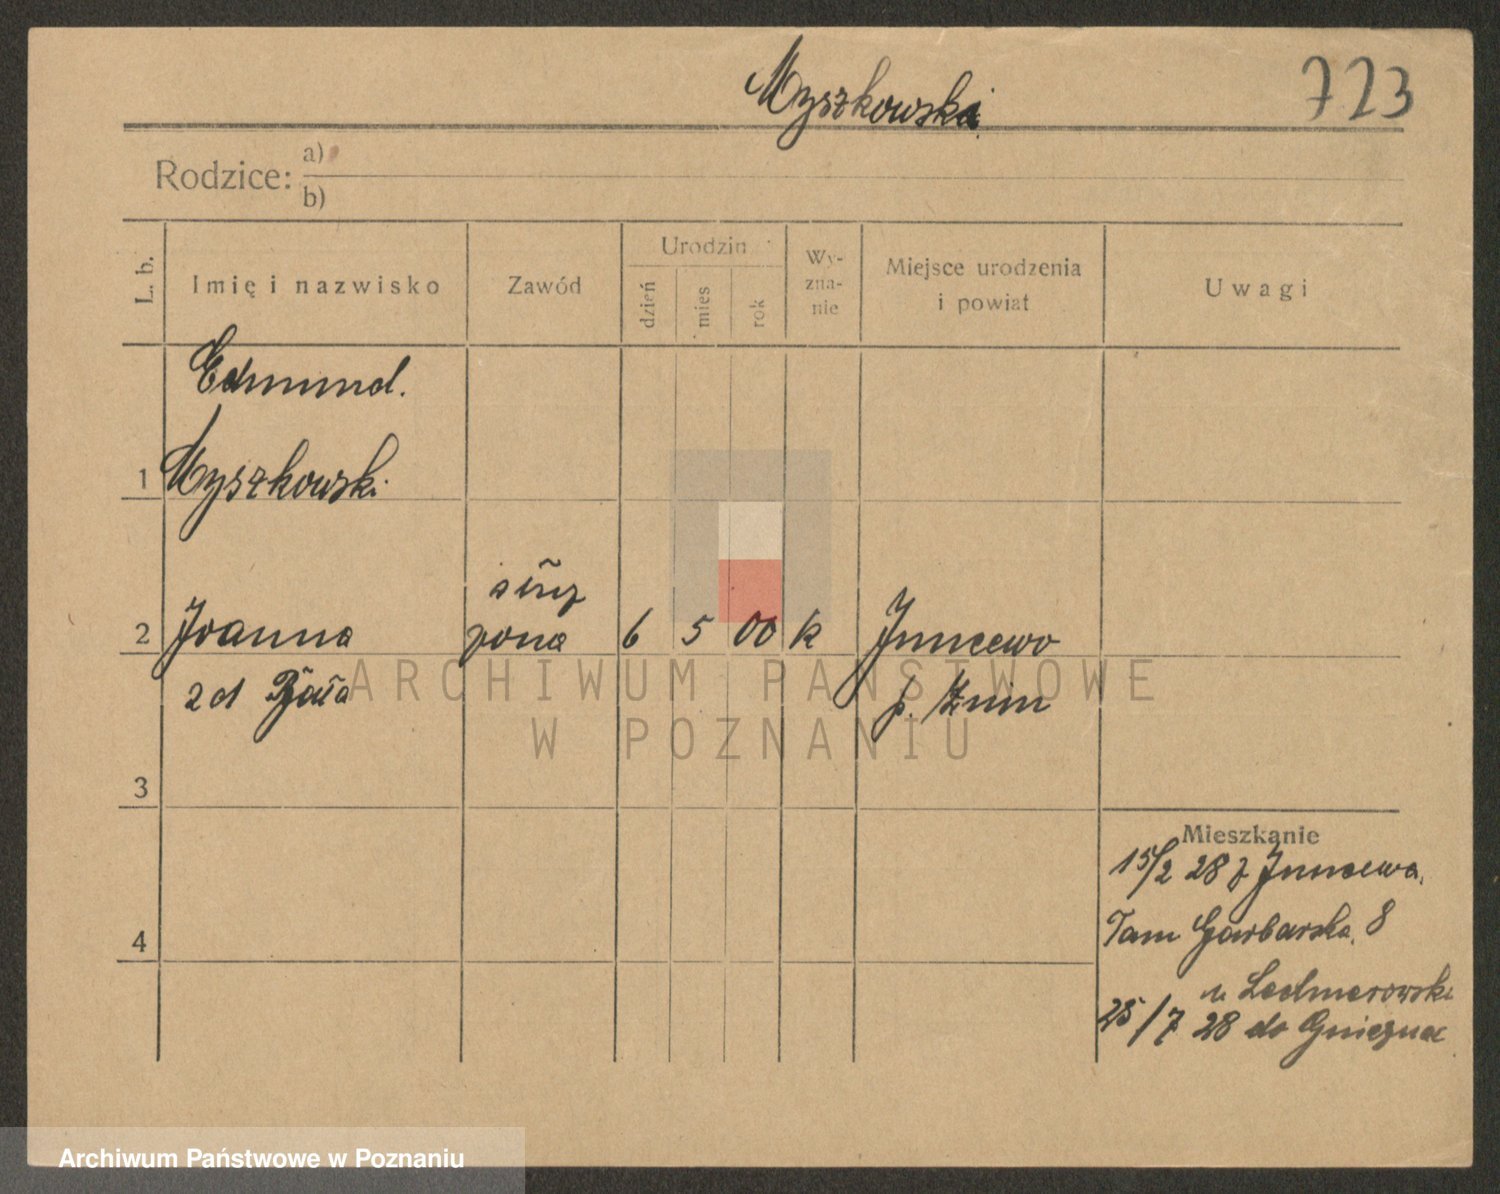 Myszkowska
723
Rodzice: a)
b)
L. b.
Imię i nazwisko
Zawód
Urodzin
dzień
mies
rok
Wy-
zna-
nie
Miejsce urodzenia
i powiat
Uwagi
Edmund.
1 Myszkowski
służ
2 Joanna żona 6 5 00 k Juncewo
zd p. Żnin
3
4
Mieszkanie
15/2 28 z Juncewa,
Tam Garbarska 8
u
25/7 28 do Gniezna
ARCHIWUM PAŃSTWOWE
W POZNANIU
Archiwum Państwowe w Poznaniu